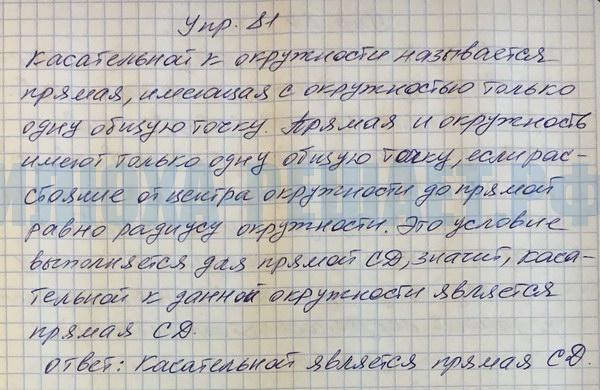 Упр. 81
Касательной к окружности называется
прямая, имеющая с окружностью только
одну общую точку. Прямая и окружность
имеют только одну общую точку, если рас-
стояние от центра окружности до прямой
равно радиусу окружности. Это условие
выполняется для прямой СД, значит, каса-
тельной к данной окружности является
прямая СД.
Ответ: Касательной является прямая СД.